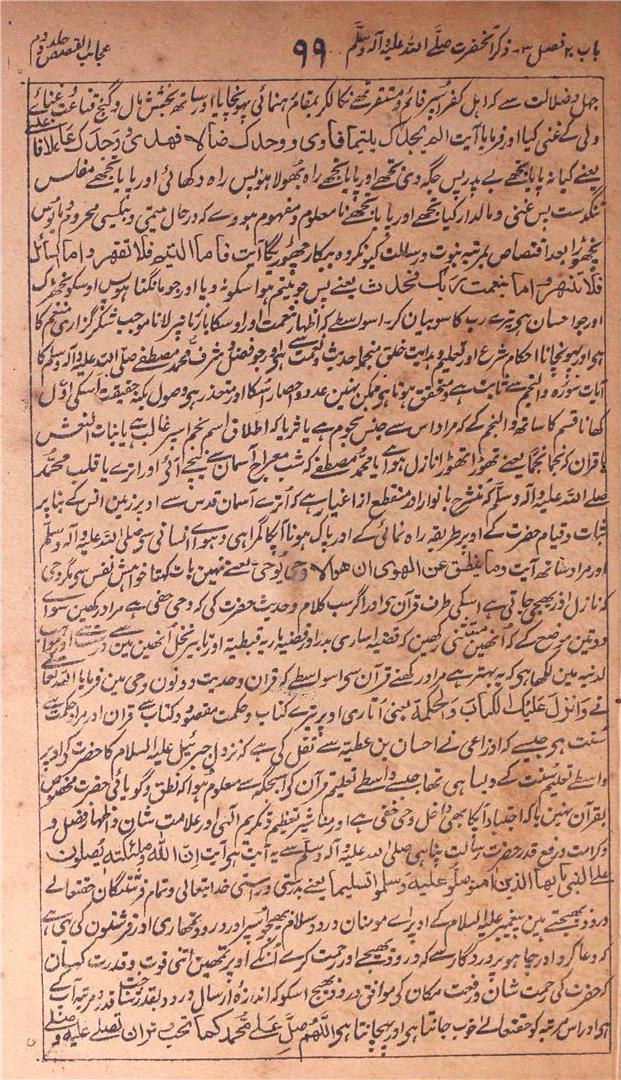 باب ۲ فصل ۳ - ذکر آنحضرت صلے اللہ علیہ وآلہ وسلم ۹۹ عجائب القصص جلد دوم
جہل و ضلالت سے کہ اہل کفر اسپر قائم و مستقر تھے نکالکر بمقام رہنمائی پہونچایا اور ساتھ بخشش مال و گنج قناعت و غنائے
دلی کے غنی کیا اور فرمایا آیت الم یجدک یتیما فاوی و وجدک ضالا فهدی و وجدک عائلا فا
یعنے کیا نہ پایا تجھے بے پدر پس جگہ دی تجھے اور پایا تجھے راہ بھولا ہوا پس راہ دکھائی اور پایا تجھے مفلس
تنگدست پس غنی و مالدار کیا تجھے اور پایا تجھے نا معلوم و مفہوم ہووے کہ درحال یتیمی و بیکسی محروم و مایوس
نچھوڑا بعد اختصاص بمرتبہ نبوت و رسالت کیونکر وہ بیکار چھوڑیگا آیت فاما الیتیم فلا تقهر و اما السائل
فلا تنهر و اما بنعمت ربک فحدث یعنے پس جو یتیم ہوا سکو نہ دبا اور جو مانگتا ہو پس اوسکو نجھڑک
اور جو احسان ہی تیرے رب کا سو بیان کر - اسواسطے کہ اظہار نعمت اور اوسکا بزبان پر لانا موجب شکر گزاری منعم کا
ہی اور پہونچانا احکام شرع اور تعلیم و ہدایت خلق منجملہ حدیث و نعمت ہی اور جو فضل و شرف محمد مصطفے صلے اللہ علیہ وآلہ وسلم کا
آیات سورہ والنجم سے ثابت ہے و متحقق ہونا ہی ممکن نہین عدد و احصار اسکا اور متعذر ہی وصول بکنہ حقیقت اسکی اول
کھانا قسم کا ساتھ والنجم کے کہ مراد اس سے جنس نجوم ہے یا ثریا کہ اطلاق اسم نجم اسپر غالب ہے یا بنات النعش
یا قرآن کہ نجما نجما یعنے تھوڑا تھوڑا نازل ہوا ہے یا محمد مصطفے کہ شب معراج آسمان سے نیچے آئے اور اترے یا قلب محمد
صلے اللہ علیہ وآلہ وسلم کہ منشرح بانوار اور منقطع از اغیار ہے کہ اترے آسمان قدس سے اوپر زمین انس کے بنا بر
ثبات و قیام حضرت کے اوپر طریقہ راہ نمائی کے اور پاک ہونا آپکا گمراہی و ہوائے انسانی سے صلی اللہ علیہ وآلہ وسلم
اور مراد ساتھ آیت وما ینطق عن الهوی ان هو الا وحی یوحی یعنے نہین بات کہتا خواہش نفس سے مگر وحی
کہ نازل اور بھیجی جاتی ہے اسکی طرف قرآن ہی اور اگر سب کلام و حدیث حضرت کی کہ وحی خفی ہے مراد رکھین سوائے
دو تین موضع کے کہ انھین مستثنے رکھین کہ قضیہ اساری بدر اور قضیہ ماریہ قبطیہ اور تابیر نخل انھین مین سے ہے
لدنیہ مین لکھا ہی کہ یہ بہتر ہے مراد رکھنے قرآن سے اسواسطے کہ قرآن و حدیث دونون وحی مین فرمایا اللہ تعالے
نے وانزل علیک الکتاب والحکمة یعنی اتاری اوپر تیرے کتاب و حکمت مقصود کتاب سے قرآن اور مراد حکمت سے
سنت ہی جیسے کہ اوزاعی نے احسان بن عطیہ سے نقل کی ہے کہ نزول جبرئیل علیہ السلام کا حضرت کی اوپر
واسطے تعلیم سنت کے ویسا ہی تھا جیسے واسطے تعلیم قرآن کی اسجگہ سے معلوم ہوا کہ نطق و گویائی حضرت مخصوص
بقرآن نہین بلکہ اجتہاد آپکا بھی داخل وحی خفی ہے اور تعظیم و تکریم الہی اور علامت شان و اظہار فضل و
کرامت و رفع قدر حضرت رسالت پناہی صلی اللہ علیہ وآلہ وسلم سے یہ آیت ہی آیت ان الله وملئکته یصلون
علی النبی یا یها الذین امنوا صلو علیه وسلموا تسلیما یعنے بدرستی و راستی خدا تعالی و تمام فرشتگان حقتعالے
درود بھیجتے ہین پیغمبر علیہ السلام کے اوپر اے مومنان درود و سلام بھیجو اسپر اور درود تمھاری اور فرشتون کی یہی ہے
کہ دعا کرو اور چاہو پروردگار سے کہ درود بھیجے اور رحمت کرے انکے اوپر تمھین اتنی قوت و قدرت کہان
کہ حضرت کی رحمت شان و رفعت مکان کی موافق درود بھیج اسکو کہ اندازہ ارسال درود بقدر منزلت و مرتبہ آپکے
ہی اور اس مرتبہ کو حقتعالے خوب جانتا ہی اور پہچانتا ہی اللهم صل علے محمد کما تحب و ان تصلے علیه و